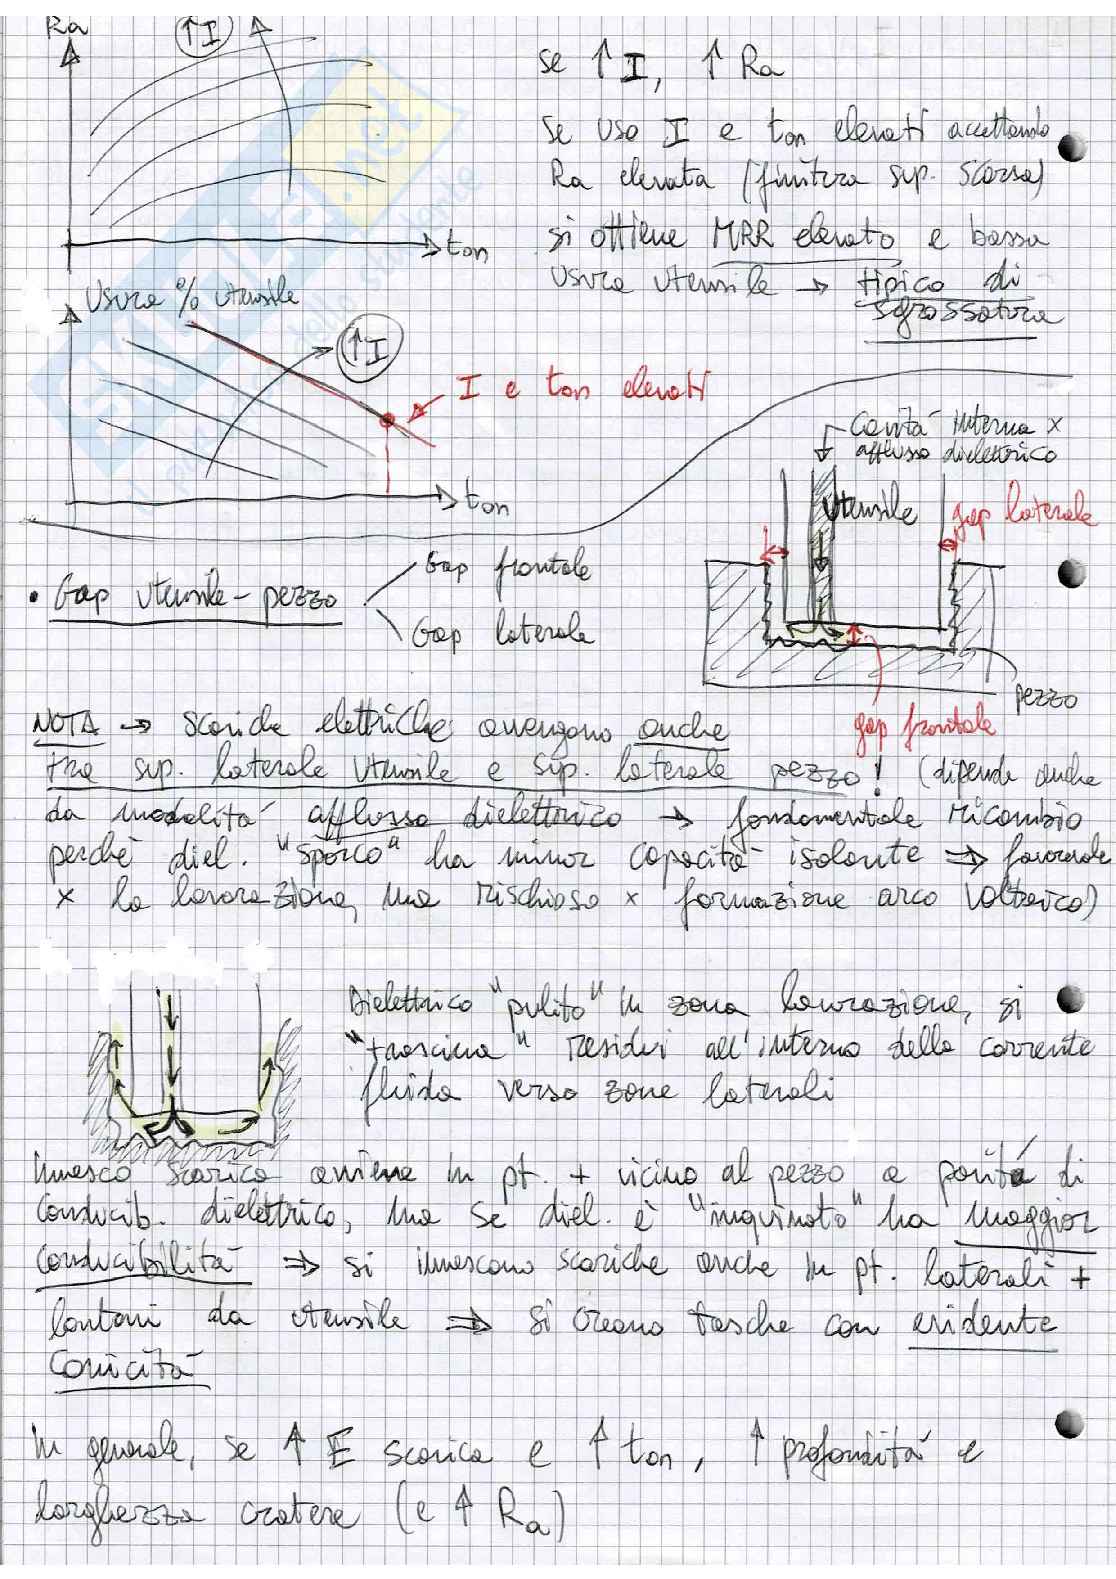 Ra
↑I
ton
se ↑ I, ↑ Ra
se uso I e ton elevati accettando
Ra elevata (finitura sup. scarsa)
si ottiene MRR elevato e bassa
usura utensile → tipico di
sgrossatura
Usura % utensile
↑I
I e ton elevati
ton
Cavità interna x
afflusso dielettrico
utensile
gap laterale
• Gap utensile - pezzo
Gap frontale
Gap laterale
pezzo
gap frontale
NOTA → scariche elettriche avvengono anche
tra sup. laterale utensile e sup. laterale pezzo! (dipende anche
da modalità afflusso dielettrico → fondamentale ricambio
perché diel. "sporco" ha minor capacità isolante ⇒ favorevole
x la lavorazione, ma rischioso x formazione arco voltaico)
Dielettrico "pulito" in zona lavorazione, si
"trascina" residui all'interno della corrente
fluida verso zone laterali
innesco scarica avviene in pt. + vicino al pezzo a parità di
conducib. dielettrico, ma se diel. è "inquinato" ha maggior
conducibilità ⇒ si innescano scariche anche in pt. laterali +
lontani da utensile ⇒ si creano tasche con evidente
conicità
in generale, se ↑ E scarica e ↑ ton, ↑ profondità e
larghezza cratere (e ↑ Ra)